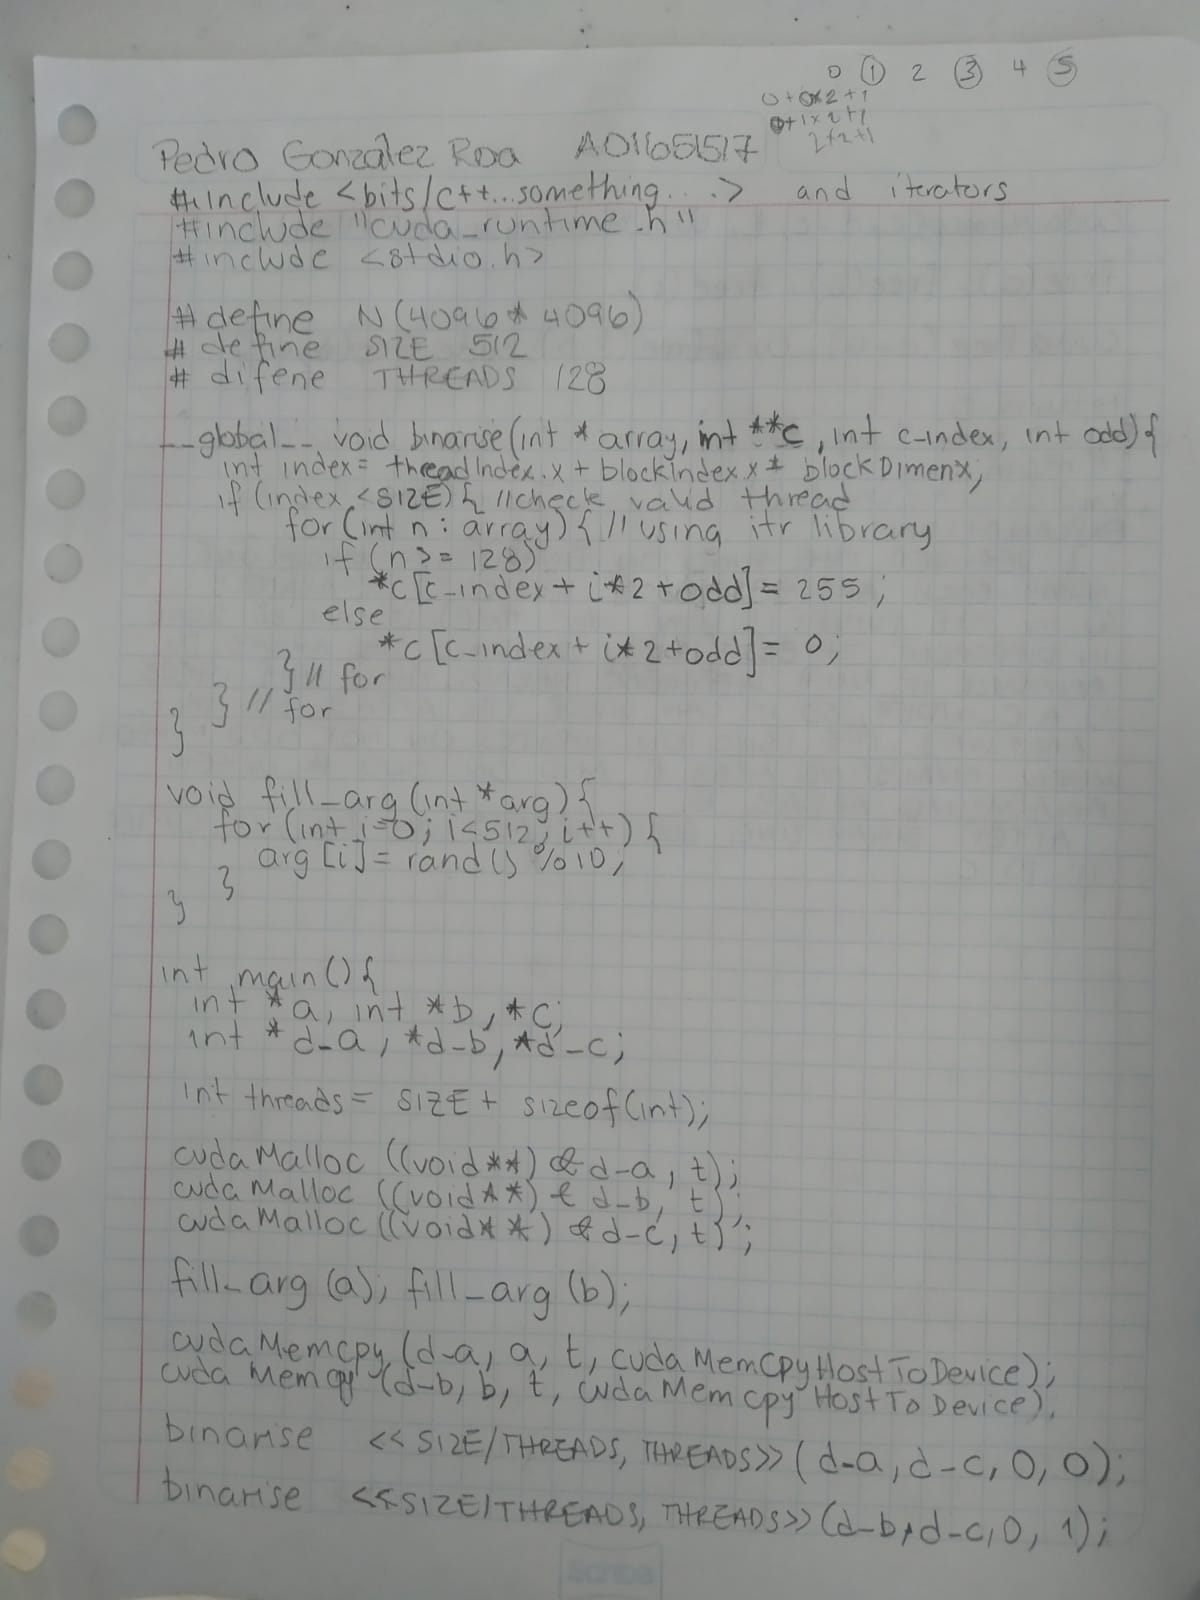 0 1 2 3 4 5
0+0x2+1
0+1x2+1
2+2+1
Pedro González Roa A01651517
#include <bits/c++...something...> and iterators
#include "cuda_runtime.h"
#include <stdio.h>
#define N(4096*4096)
#define SIZE 512
#difene THREADS 128
__global__ void binarise(int *array, int **c, int c_index, int odd){
int index= threadIndex.x + blockIndex.x * blockDimenx;
if (index<SIZE){ //check valid thread
for(int n: array){ // using itr library
if (n>=128)
*c[c_index+i*2+odd]=255;
else
*c[c_index+i*2+odd]=0;
}// for
}// for
}
void fill_arg(int *arg){
for(int i=0; i<512; i++){
arg[i]=rand()%10;
}
}
int main(){
int *a, int *b, *c;
int *d_a, *d_b, *d_c;
int threads= SIZE + sizeof(int);
cudaMalloc((void**)&d_a, t);
cudaMalloc((void**)&d_b, t);
cudaMalloc((void**)&d_c, t);
fill_arg(a); fill_arg(b);
cudaMemcpy(d_a, a, t, cudaMemCpyHostToDevice);
cudaMemcpy(d_b, b, t, cudaMemcpyHostToDevice),
binarise <<SIZE/THREADS, THREADS>>(d_a, d_c, 0, 0);
binarise <<SIZE/THREADS, THREADS>>(d_b, d_c, 0, 1);
Scribe